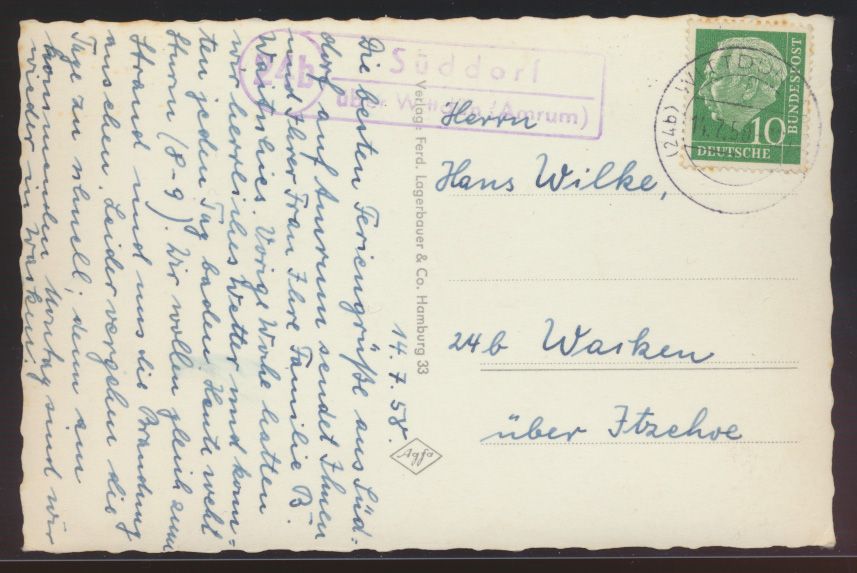 14.7.58.
Die besten Feriengrüße aus Süd-
dorf auf Amrum sendet Ihnen
und Ihrer Frau Ihre Familie B.
Westphlies. Vorige Woche hatten
wir herrliches Wetter und konn-
ten jeden Tag baden. Heute weht
Sturm (8-9). Wir wollen gleich zum
Strand und uns die Brandung
ansehen. Leider vergehen die
Tage zu schnell; denn am
kommenden Montag sind wir
wieder in Wacken.
24b
Süddorf
über Wittdün (Amrum)
Verlag: Ferd. Lagerbauer & Co. Hamburg 33
Agfa
Herrn
Hans Wilke,
24b Wacken
über Itzehoe
(24b) WITTDÜN
14.7.58
10
DEUTSCHE
BUNDESPOST